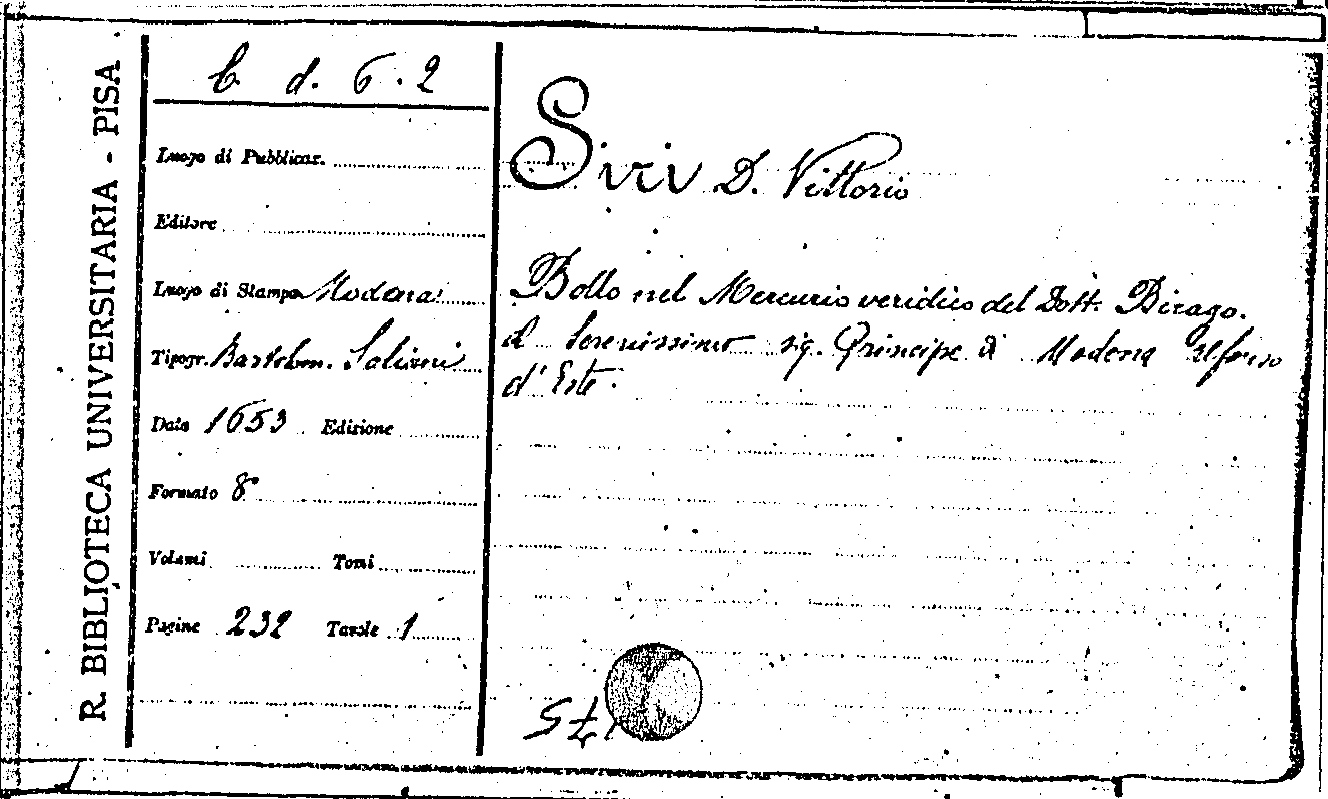 R. BIBLIOTECA UNIVERSITARIA - PISA
b d. 6. 2
Luogo di Pubblicaz.
Editore
Luogo di Stampa Modena
Tipogr. Bartolom. Soliani
Data 1653 Edizione
Formato 8°
Volumi Tomi
Pagine 232 Tavole 1
Siri D. Vittorio
Bollo nel Mercurio veridico del Dott. Birago.
al Serenissimo sig. Principe di Modena Alfonso
d'Este.